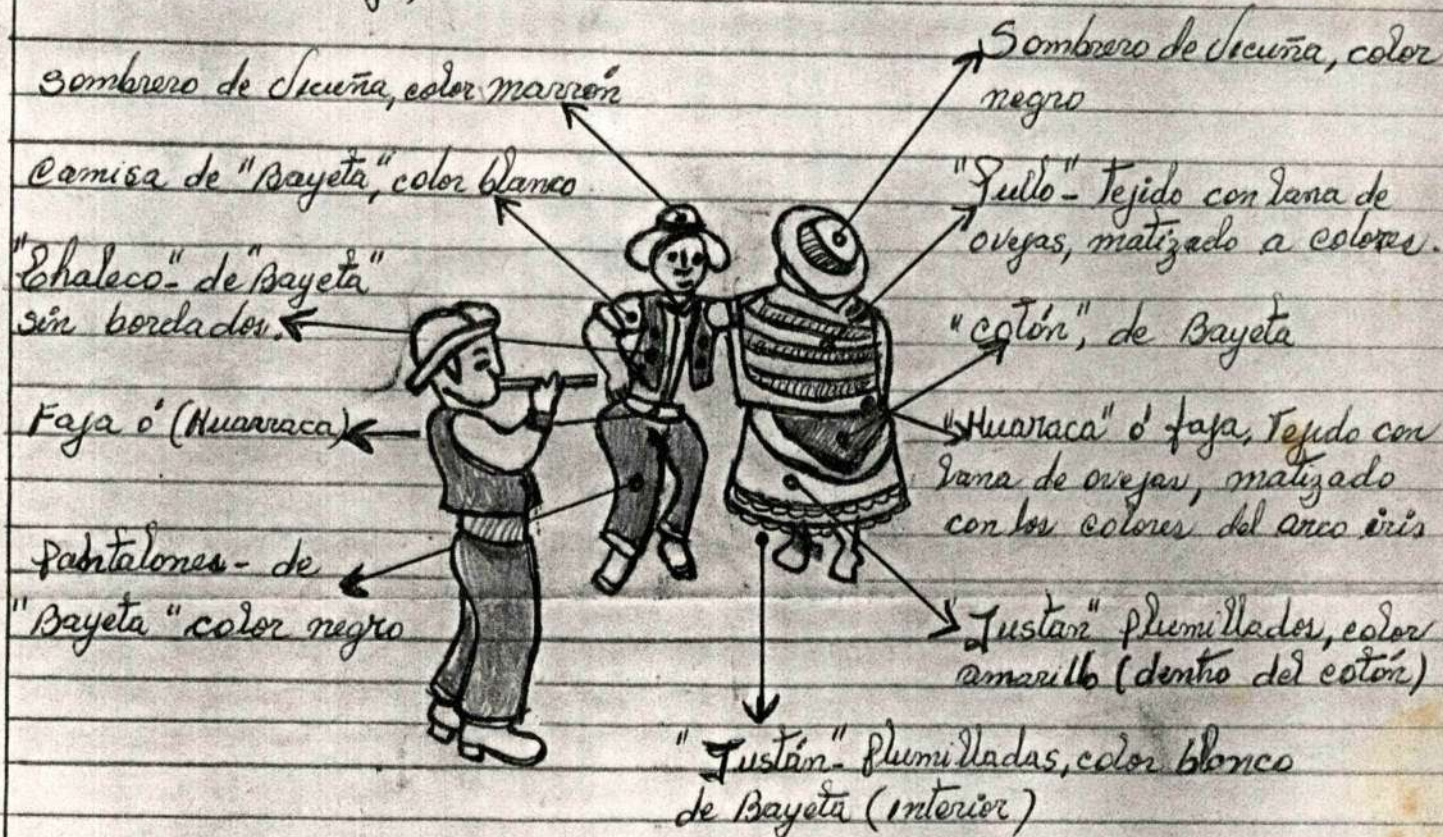 Sombrero de Vicuña, color marrón
Camisa de "Bayeta", color blanco.
"Chaleco"- de "Bayeta"
sin bordados.
Faja ó (Huarraca)
Pantalones - de
"Bayeta" color negro
Sombrero de Vicuña, color
negro
"Pullo"- Tejido con lana de
ovejas, matizado a colores.
"cotón", de Bayeta
"Huaraca" ó faja, Tejido con
lana de ovejas, matizado
con los colores del arco iris
"Fustán" Plumillados, color
amarillo (dentro del cotón)
"Fustán"- Plumilladas, color blanco
de Bayeta (interior)